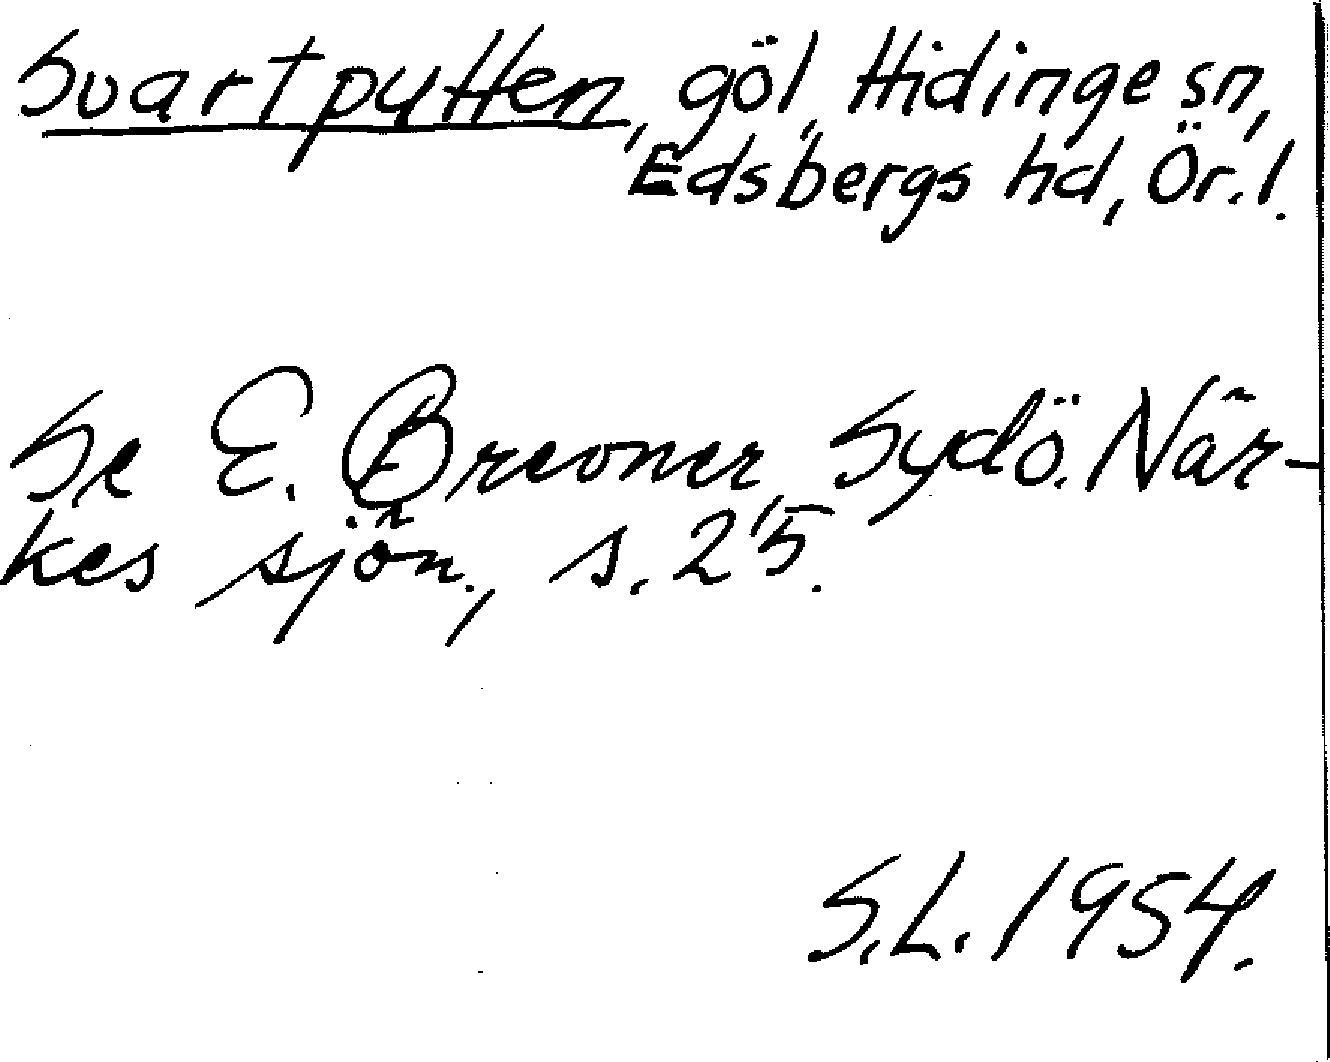 Svartputten, göl, Hidinge sn,
Edsbergs hd, Ör. l.
Se E. Brevner, Sydö. När-
kes sjön., s. 25.
S.L. 1954.